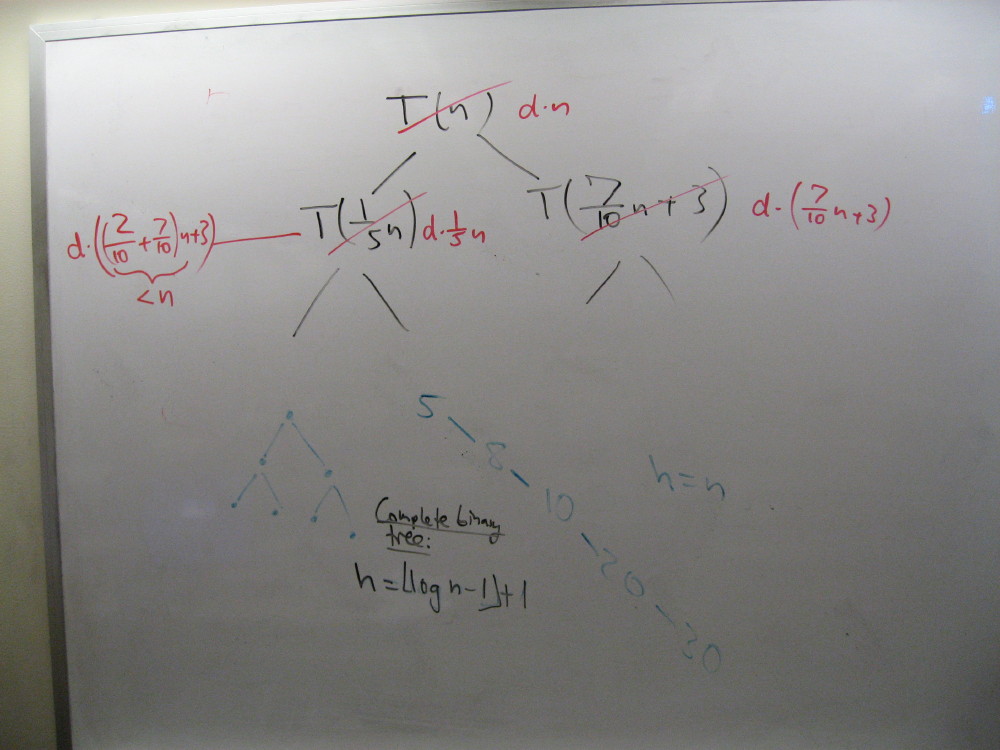 T(n) d·n
T(1/5 n) d·1/5 n
T(7/10 n+3) d·(7/10 n+3)
d·((2/10+7/10)n+3)
<n
5
8
10
20
30
h=n
Complete binary
tree:
h=⌊log n-1⌋+1